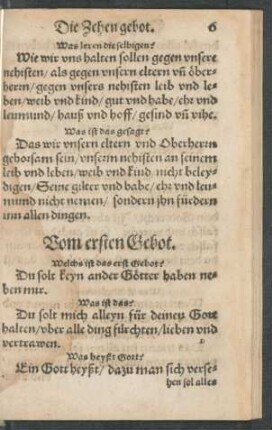 Die Zehen gebot. 6
Was leren die selbigen?
Wie wir vns halten sollen gegen vnsere
nehisten/ als gegen vnsern eltern vñ öber-
herrn/ gegen vnsers nehisten leib vnd le-
ben/ weib vnd kind/ gut vnd habe/ ehr vnd
leumund/ hauß vnd hoff/ gesind vñ vihe.
Was ist das gesagt?
Das wir vnsern eltern vnd Oberherrn
gehorsam sein/ vnserm nehisten an seinem
leib vnd leben/ weib vnd kind/ nicht beley-
digen/ Seine güter vnd habe/ ehr vnd leu-
mund nicht nemen/ sondern jhn fürdern
inn allen dingen.
Vom ersten Gebot.
Welchs ist das erst Gebot?
Du solt keyn ander Götter haben ne-
ben mir.
Was ist das?
Du solt mich alleyn für deinen Gott
halten/ vber alle ding fürchten/ lieben vnd
vertrawen.
Was heyßt Gott?
Ein Gott heyßt/ dazu man sich verse-
hen sol alles